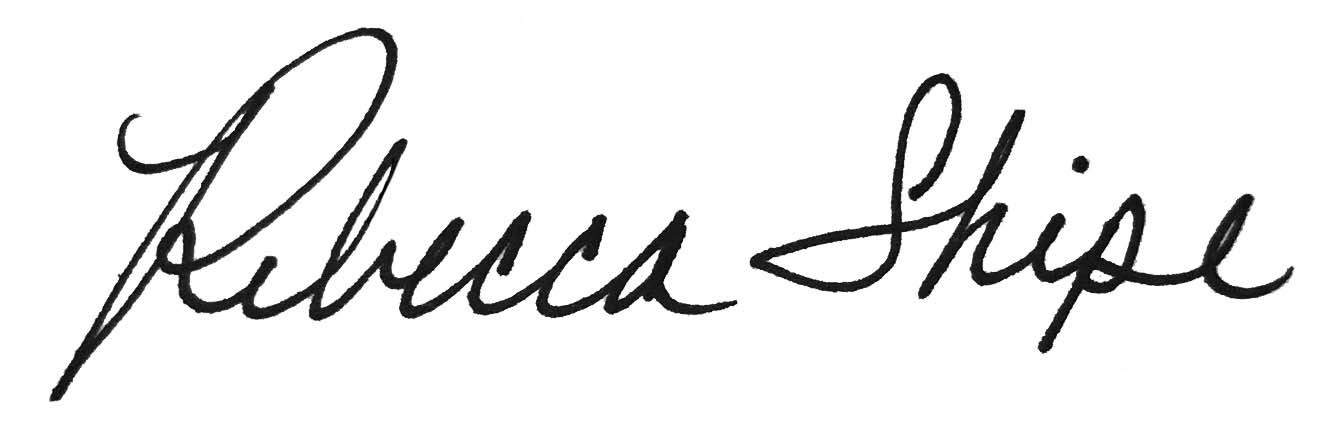 Rebecca Shipe